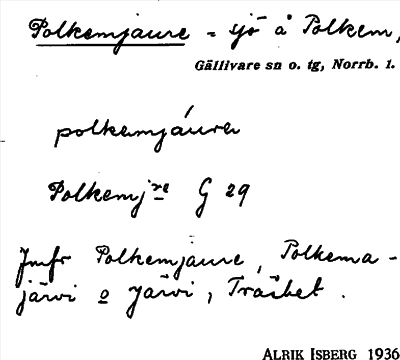 Polkemjaure - sjö å Polkem,
Gällivare sn o. tg, Norrb. l.
polkemjáurę
Polkemj:re G 29
Jmfr Polkemjaure, Polkema-
järvi o järvi, Träsket.
ALRIK ISBERG 1936